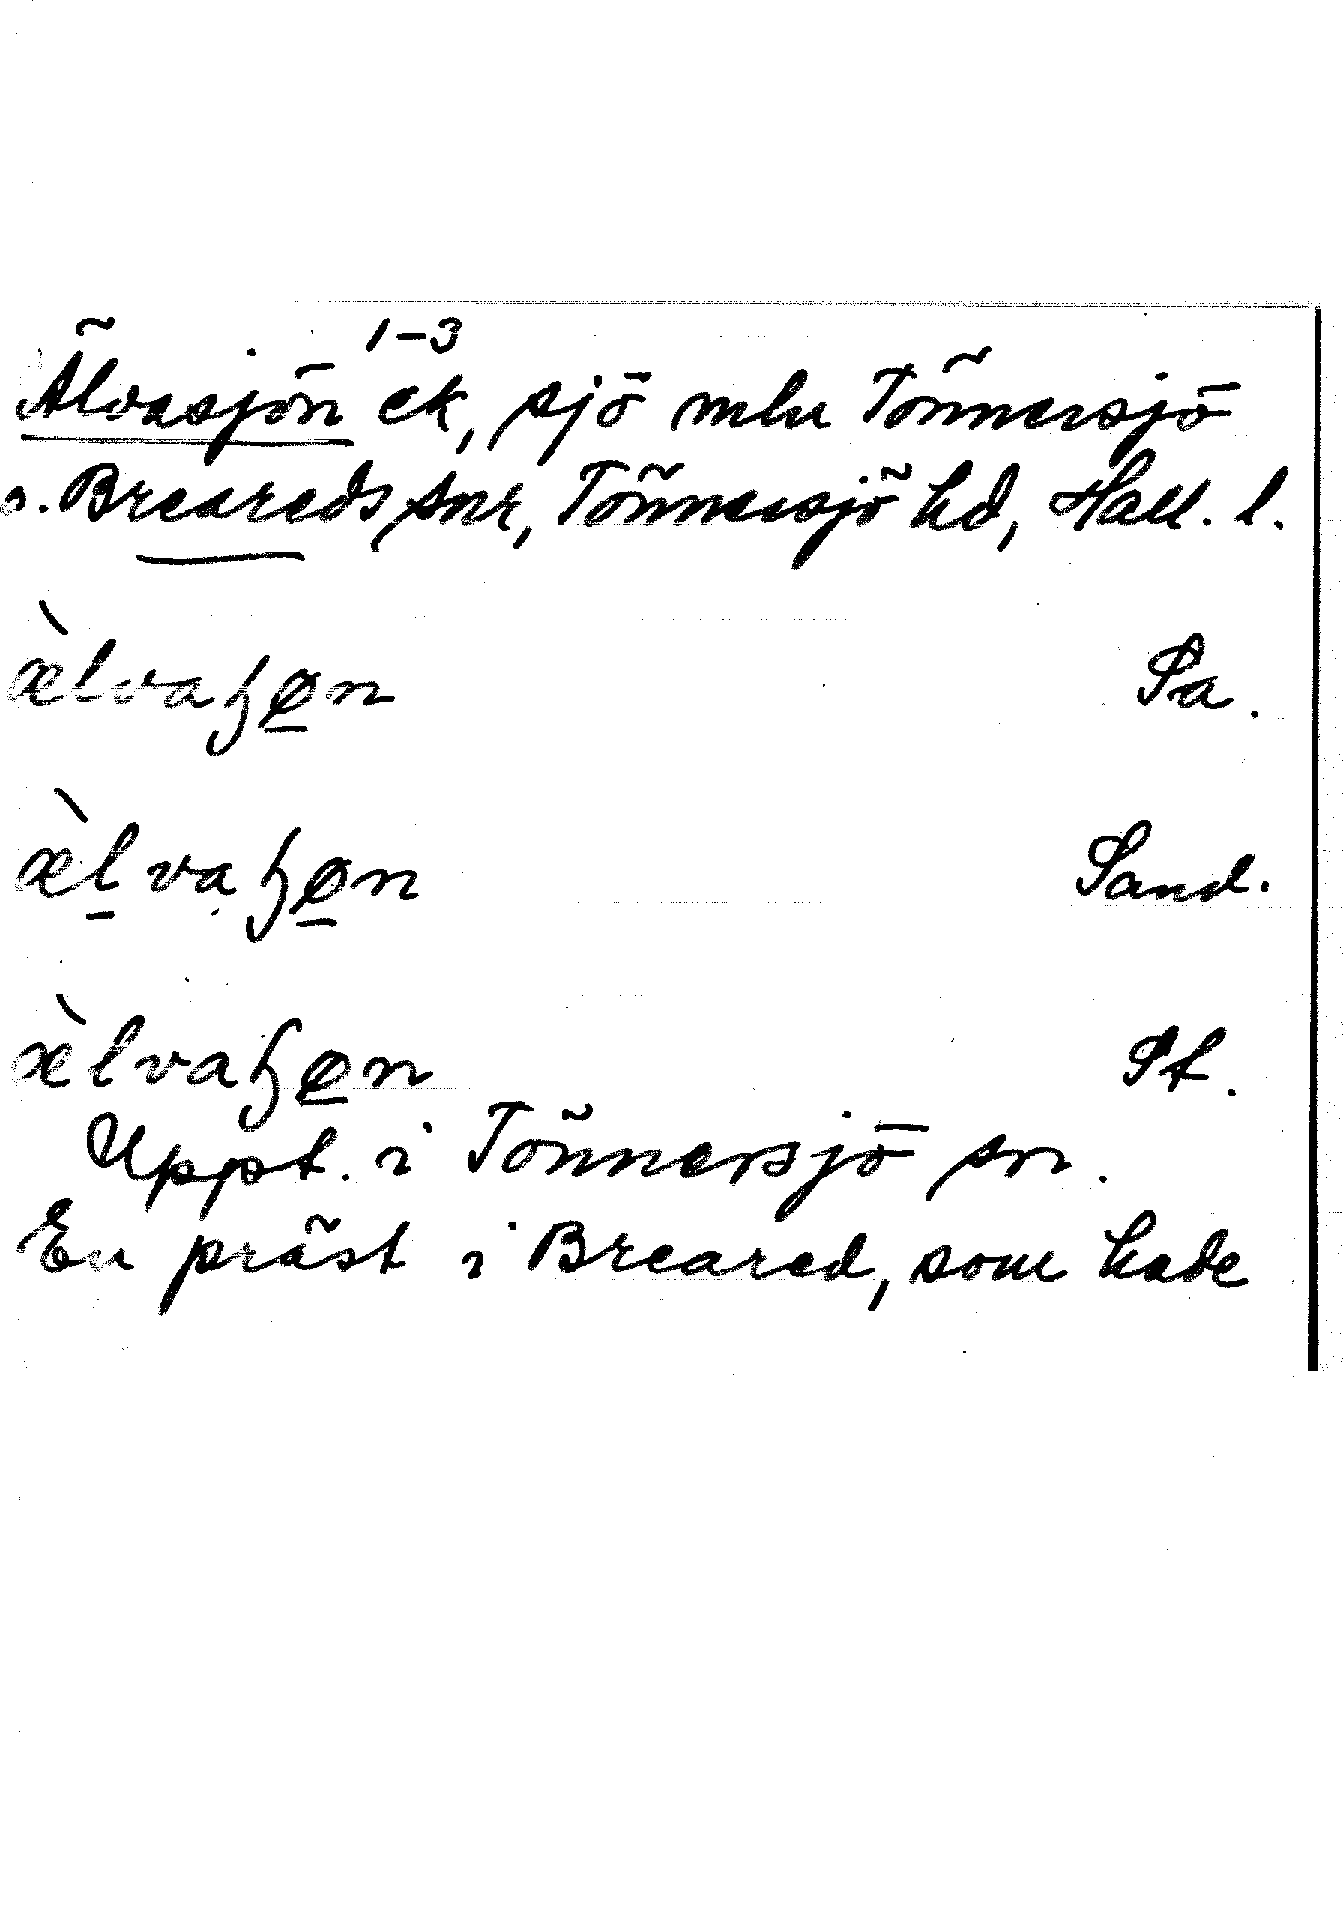 Älvasjön ek, sjö mlu Tönnersjö 1-3
o. Breareds snr, Tönnersjö hd, Hall. l.
æ̀lvaɧøn Sa.
æ̀lvaɧøn Sand.
æ̀lvaɧøn St.
Uppt. i Tönnersjö sn.
En präst i Breared, som hade